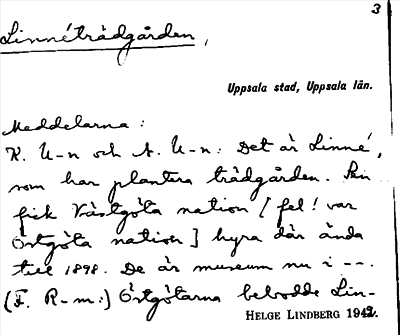 3
Linnéträdgården,
Uppsala stad, Uppsala län.
Meddelarna:
K. U-n och A. U-n: Det är Linné,
som har plantera trädgården. Sen
fick Västgöta nation [fel! var
Östgöta nation] hyra där ända
till 1898. De är museum nu i ---.
(F. R-m:) Östgötarna bebodde Lin-
HELGE LINDBERG 1942.